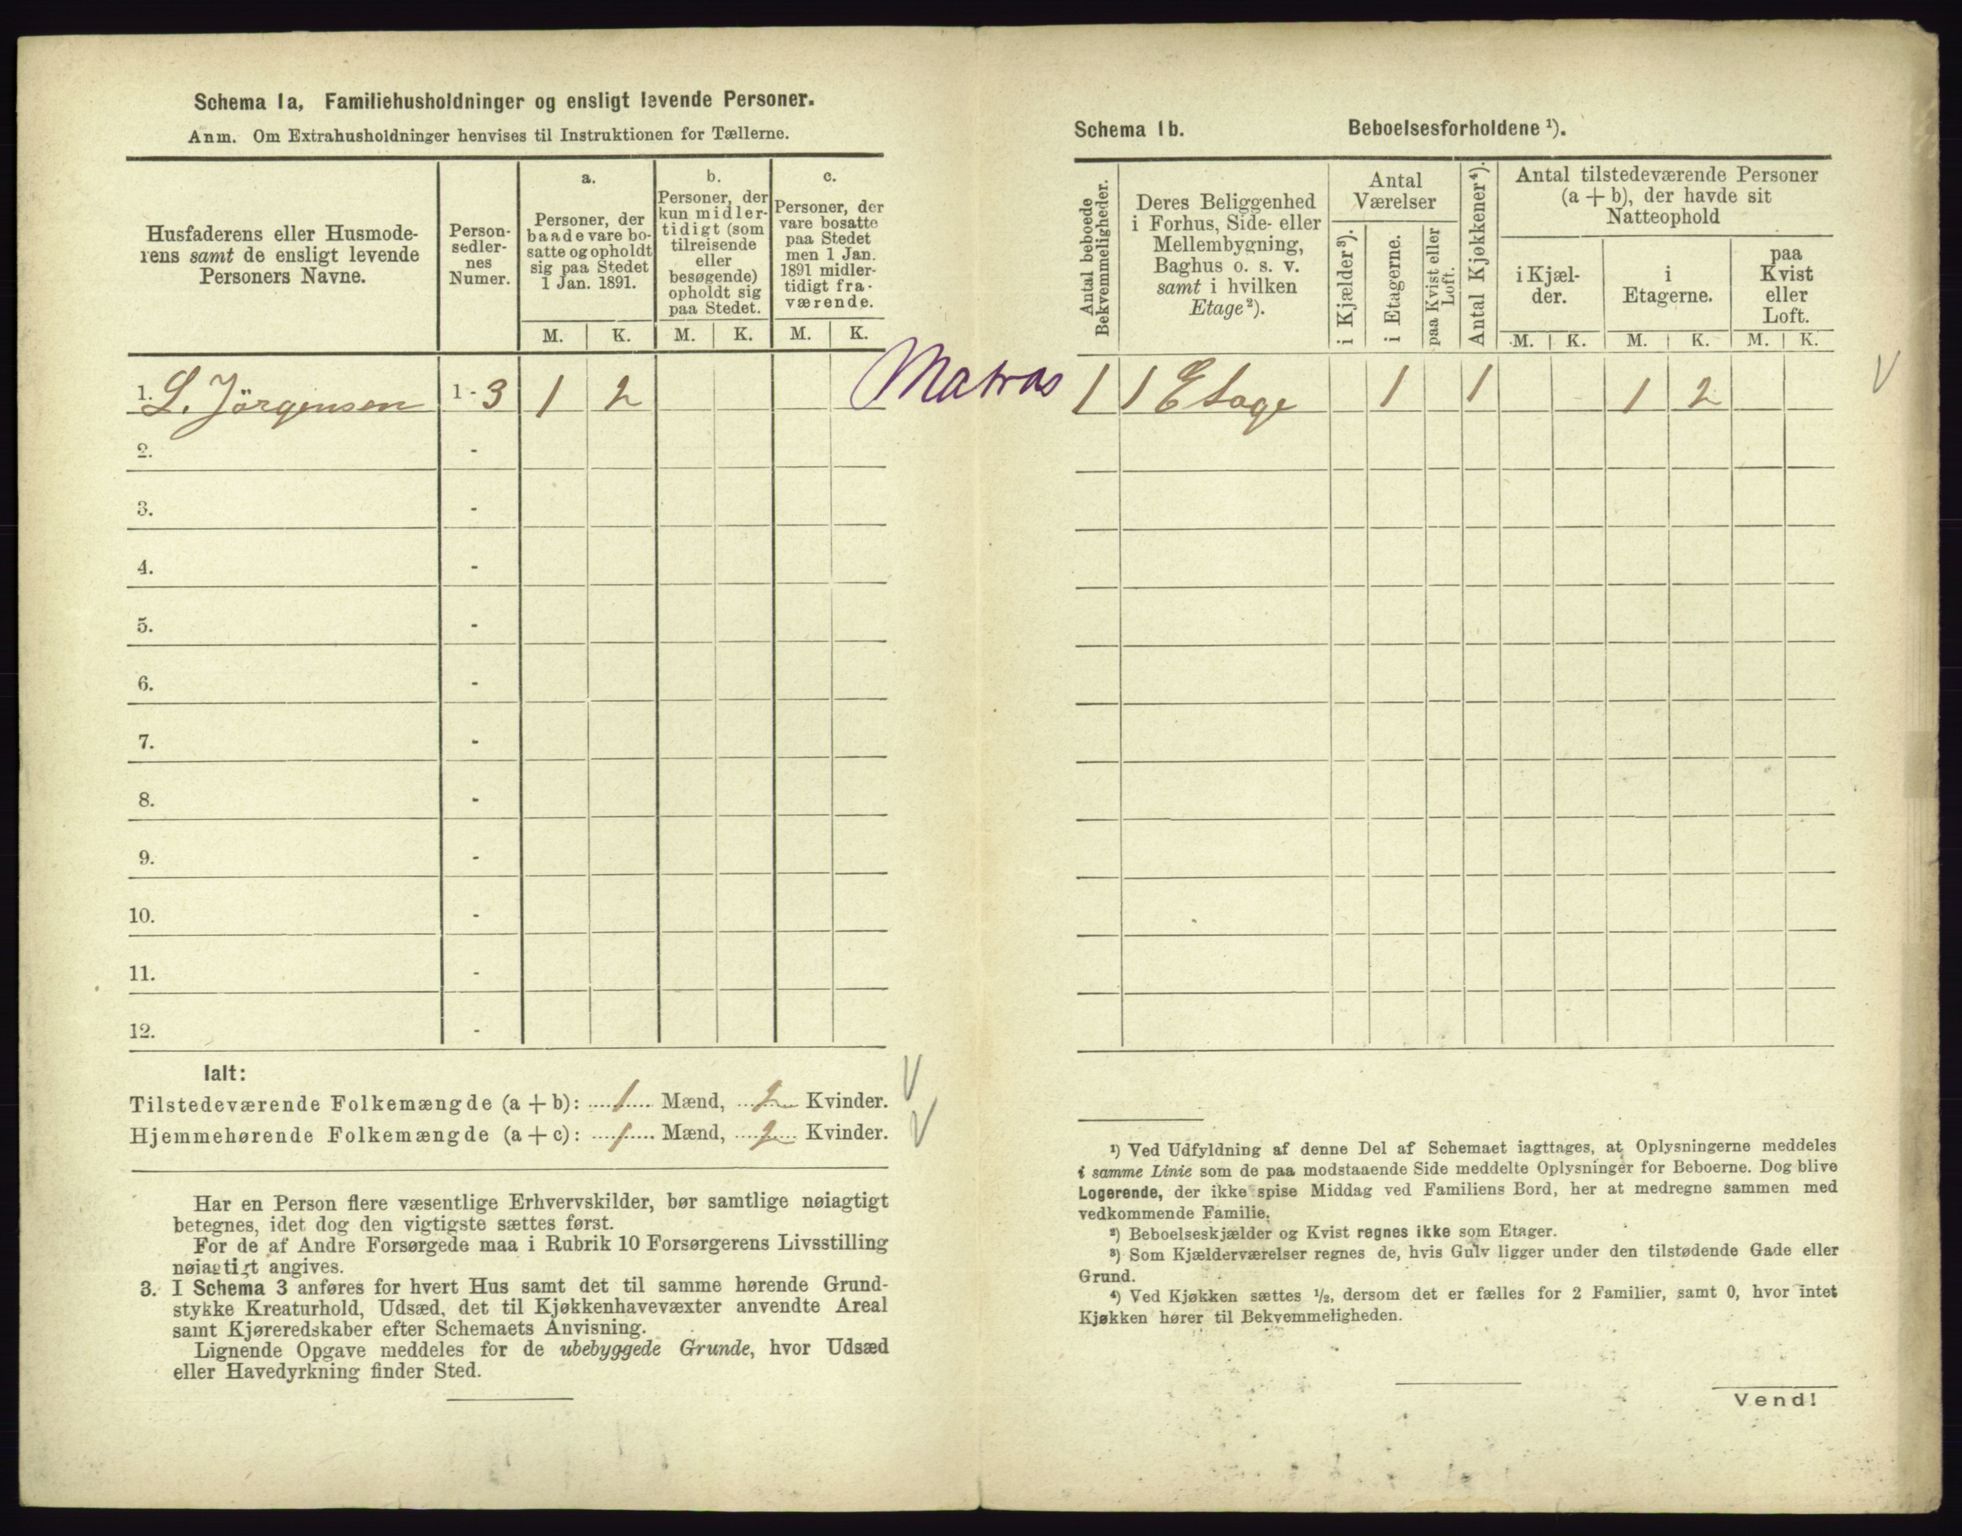 Schema 1a, Familiehusholdninger og ensligt levende Personer.
Anm. Om Extrahusholdninger henvises til Instruktionen for Tællerne.
Husfaderens eller Husmode-
rens samt de ensligt levende
Personers Navne.
Person-
sedler-
nes
Numer.
a.
Personer, der
baade vare bo-
satte og opholdt
sig paa Stedet
1 Jan. 1891.
b.
Personer, der
kun midler-
tidigt (som
tilreisende
eller
besøgende)
opholdt sig
paa Stedet.
c.
Personer, der
vare bosatte
paa Stedet
men 1 Jan.
1891 midler-
tidigt fra-
værende.
M. K. M. K. M. K.
1. L. Jörgensen 1 - 3 1 2
Matros
2. -
3. -
4. -
5. -
6. -
7. -
8. -
9. -
10. -
11. -
12. -
Ialt:
Tilstedeværende Folkemængde (a + b): 1 Mænd, 2 Kvinder.
Hjemmehørende Folkemængde (a + c): 1 Mænd, 2 Kvinder.
Har en Person flere væsentlige Erhvervskilder, bør samtlige nøiagtigt
betegnes, idet dog den vigtigste sættes først.
For de af Andre Forsørgede maa i Rubrik 10 Forsørgerens Livsstilling
nøiagtigt angives.
3. I Schema 3 anføres for hvert Hus samt det til samme hørende Grund-
stykke Kreaturhold, Udsæd, det til Kjøkkenhavevæxter anvendte Areal
samt Kjøreredskaber efter Schemaets Anvisning.
Lignende Opgave meddeles for de ubebyggede Grunde, hvor Udsæd
eller Havedyrkning finder Sted.
Schema 1b. Beboelsesforholdene ¹).
Antal beboede
Bekvemmeligheder.
Deres Beliggenhed
i Forhus, Side- eller
Mellembygning,
Baghus o. s. v.
samt i hvilken
Etage²).
Antal
Værelser
i Kjælder³).
i Etagerne.
paa Kvist eller
Loft.
Antal Kjøkkener⁴).
Antal tilstedeværende Personer
(a + b), der havde sit
Natteophold
i Kjæl-
der.
i
Etagerne.
paa
Kvist
eller
Loft.
M. K. M. K. M. K.
1 1 Etage 1 1 1 2
¹) Ved Udfyldning af denne Del af Schemaet iagttages, at Oplysningerne meddeles
i samme Linie som de paa modstaaende Side meddelte Oplysninger for Beboerne. Dog blive
Logerende, der ikke spise Middag ved Familiens Bord, her at medregne sammen med
vedkommende Familie.
²) Beboelseskjælder og Kvist regnes ikke som Etager.
³) Som Kjælderværelser regnes de, hvis Gulv ligger under den tilstødende Gade eller
Grund.
⁴) Ved Kjøkken sættes ½, dersom det er fælles for 2 Familier, samt 0, hvor intet
Kjøkken hører til Bekvemmeligheden.
Vend!